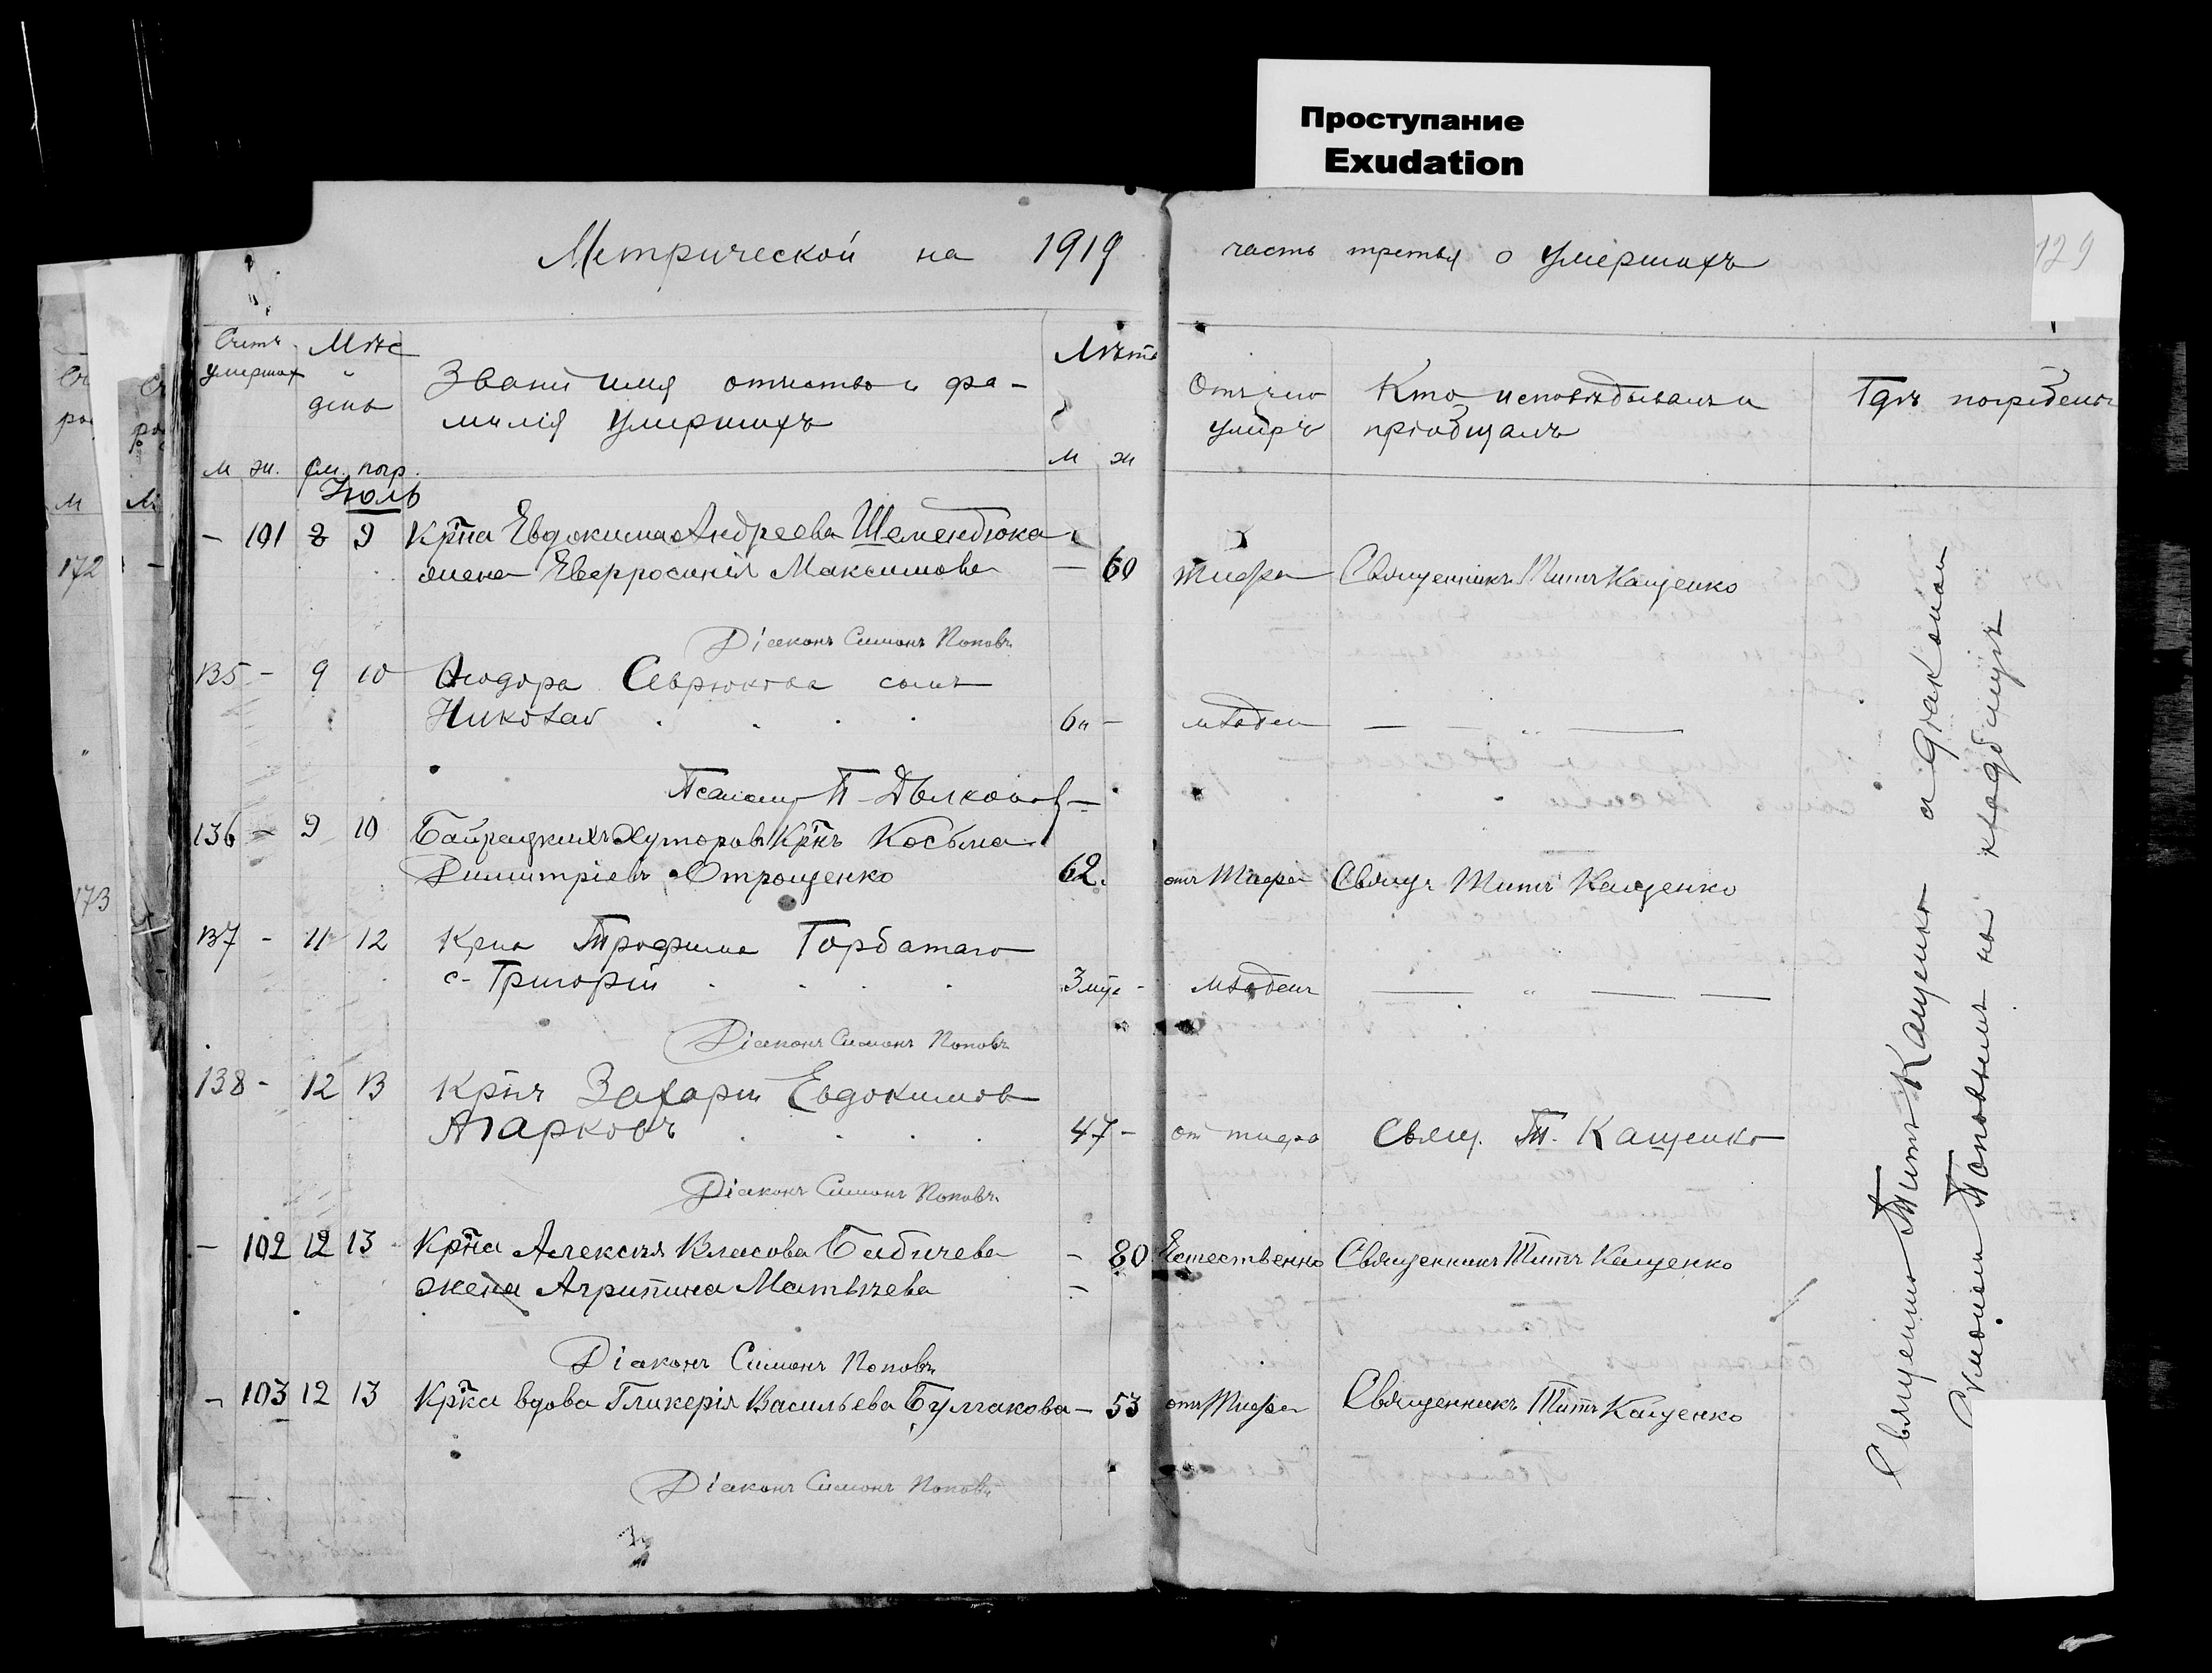 Проступание
Exudation
Метрической на 1919 часть третья о умершихъ
129
Счетъ умерших
Мѣс и день
Званіе имя отчество и фа-
милія умершихъ
Лѣта
Отъ чего умеръ
Кто исповѣдывалъ и
пріобщалъ
Гдѣ погребены
м ж. см. погр. м ж
Июль
- 101 8 9 Крна Евдокима Андреева Шемендюка
жена Евфросинія Максимова — 60 тифа Священникъ Титъ Кащенко
Діаконъ Симонъ Поповъ
135 - 9 10 Ѳиодора Севрюкова сынъ
Николай . . . . 6 н - младен — " —
Псаломщ П. Дьяконов
136 - 9 10 Байрацкихъ Хуторовъ Крнъ Косьма
Димитріевъ Отрощенко 62. отъ Тифа Свящ Титъ Кащенко
137 - 11 12 Крна Трофима Горбатаго
с- Григорій . . . . 3 мѣс - младенч — " — —
Діаконъ Симонъ Поповъ
138 - 12 13 Крнъ Захарій Евдокимов
Агарковъ . . . . 47 - от тифа Свящ. Т. Кащенко
Діаконъ Симонъ Поповъ
- 102 12 13 Крна Алексія Власова Бибичева - 80 Естественно Священникъ Титъ Кащенко
жена Агрипина Матвѣева -
Діаконъ Симонъ Поповъ
- 103 12 13 Крка вдова Гликерія Васильева Булгакова - 53 отъ Тифа Священникъ Титъ Кащенко
Діаконъ Симонъ Поповъ
Священник Титъ Кащенко с Діаконом
Симоном Поповымъ на кладбищѣ
172
173